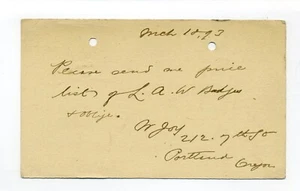 Mch 18, 93
Please send me price
list of L. A. W Badges
W Joy
212. 7th St
Portland
Oregon